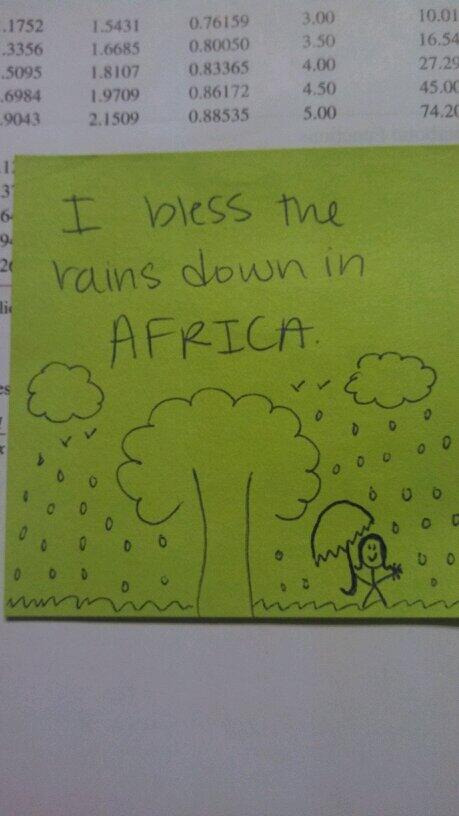 .1752 1.5431 0.76159 3.00 10.01
.3356 1.6685 0.80050 3.50 16.54
.5095 1.8107 0.83365 4.00 27.29
.6984 1.9709 0.86172 4.50 45.00
.9043 2.1509 0.88535 5.00 74.20
I bless the
rains down in
AFRICA.